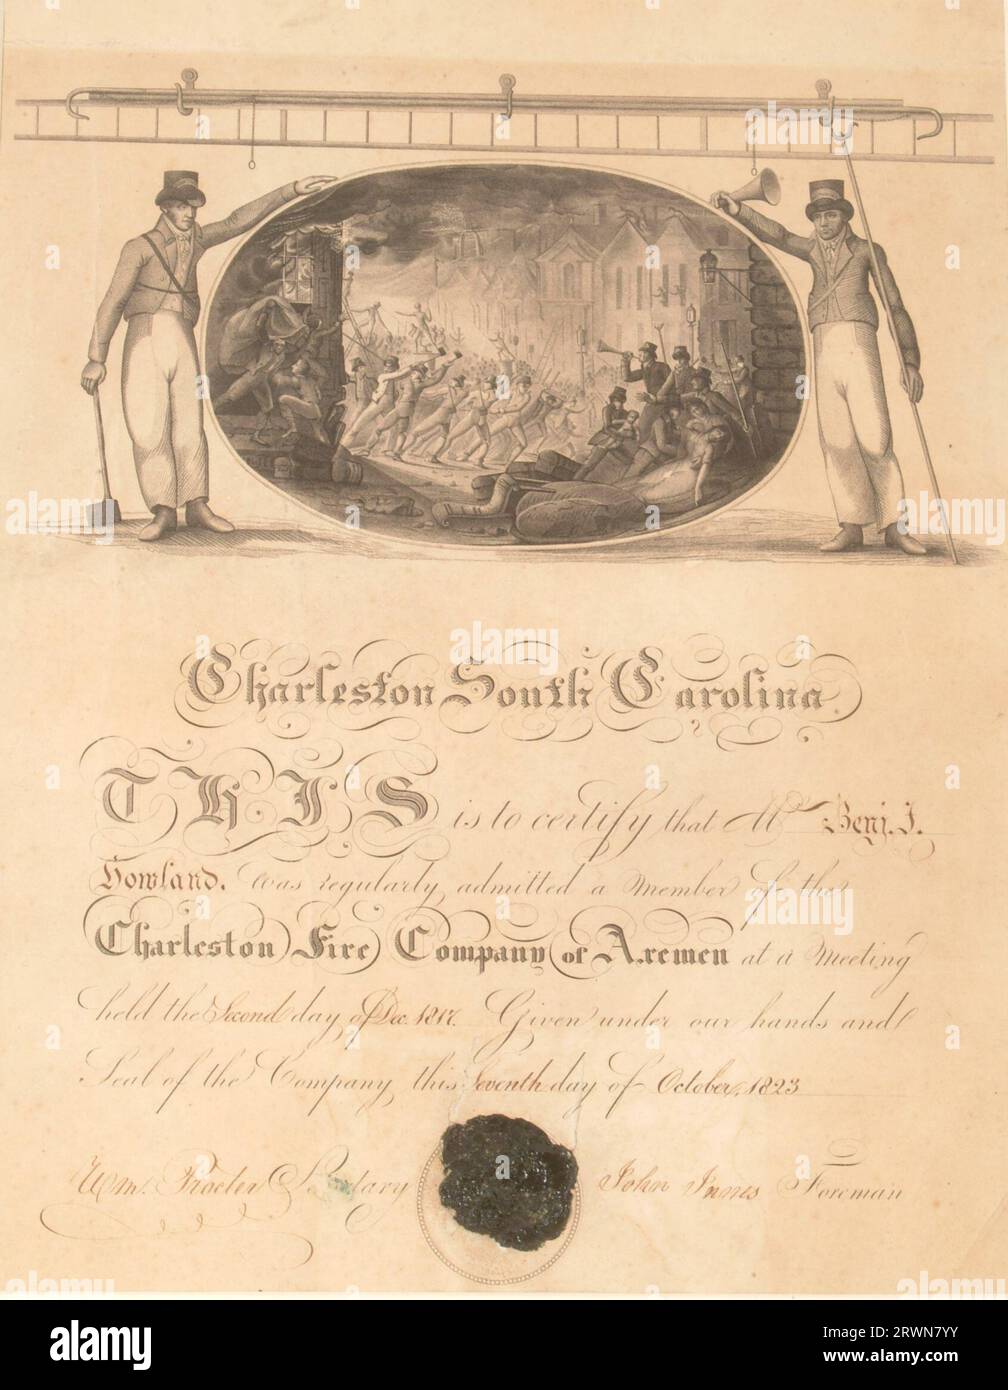 Charleston South Carolina
THIS is to certify that Mr Benj. J.
Howland. was regularly admitted a Member of the
Charleston Fire Company of Axemen at a Meeting
held the Second day of Dec. 1817. Given under our hands and
Seal of the Company, this Seventh day of October, 1823
Wm. Procter Secretary John Innes Foreman
alamy
Image ID: 2RWN7YY
www.alamy.com